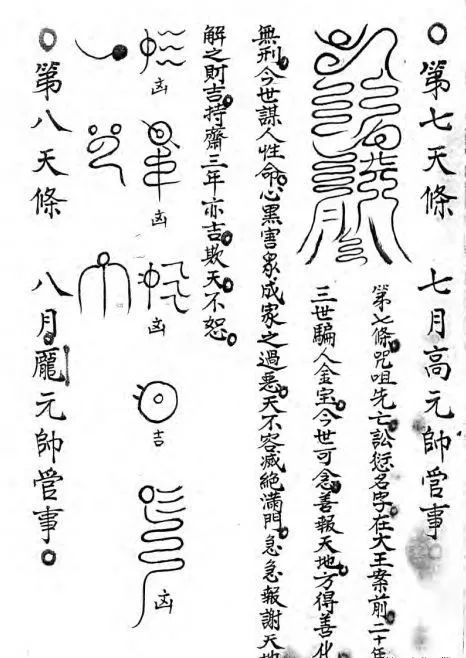 ○第七天條　七月高元帥管事
第七條咒咀先亡訟愆名字在大王案前二十年
三世騙人金宝今世可念善報天地方得善化
無刑今世謀人性命心黑害眾成家之過惡天不容滅絕滿門急急報謝天地
解之則吉持齋三年亦吉欺天不恕
凶
凶
凶
吉
凶
○第八天條　八月龐元帥管事○